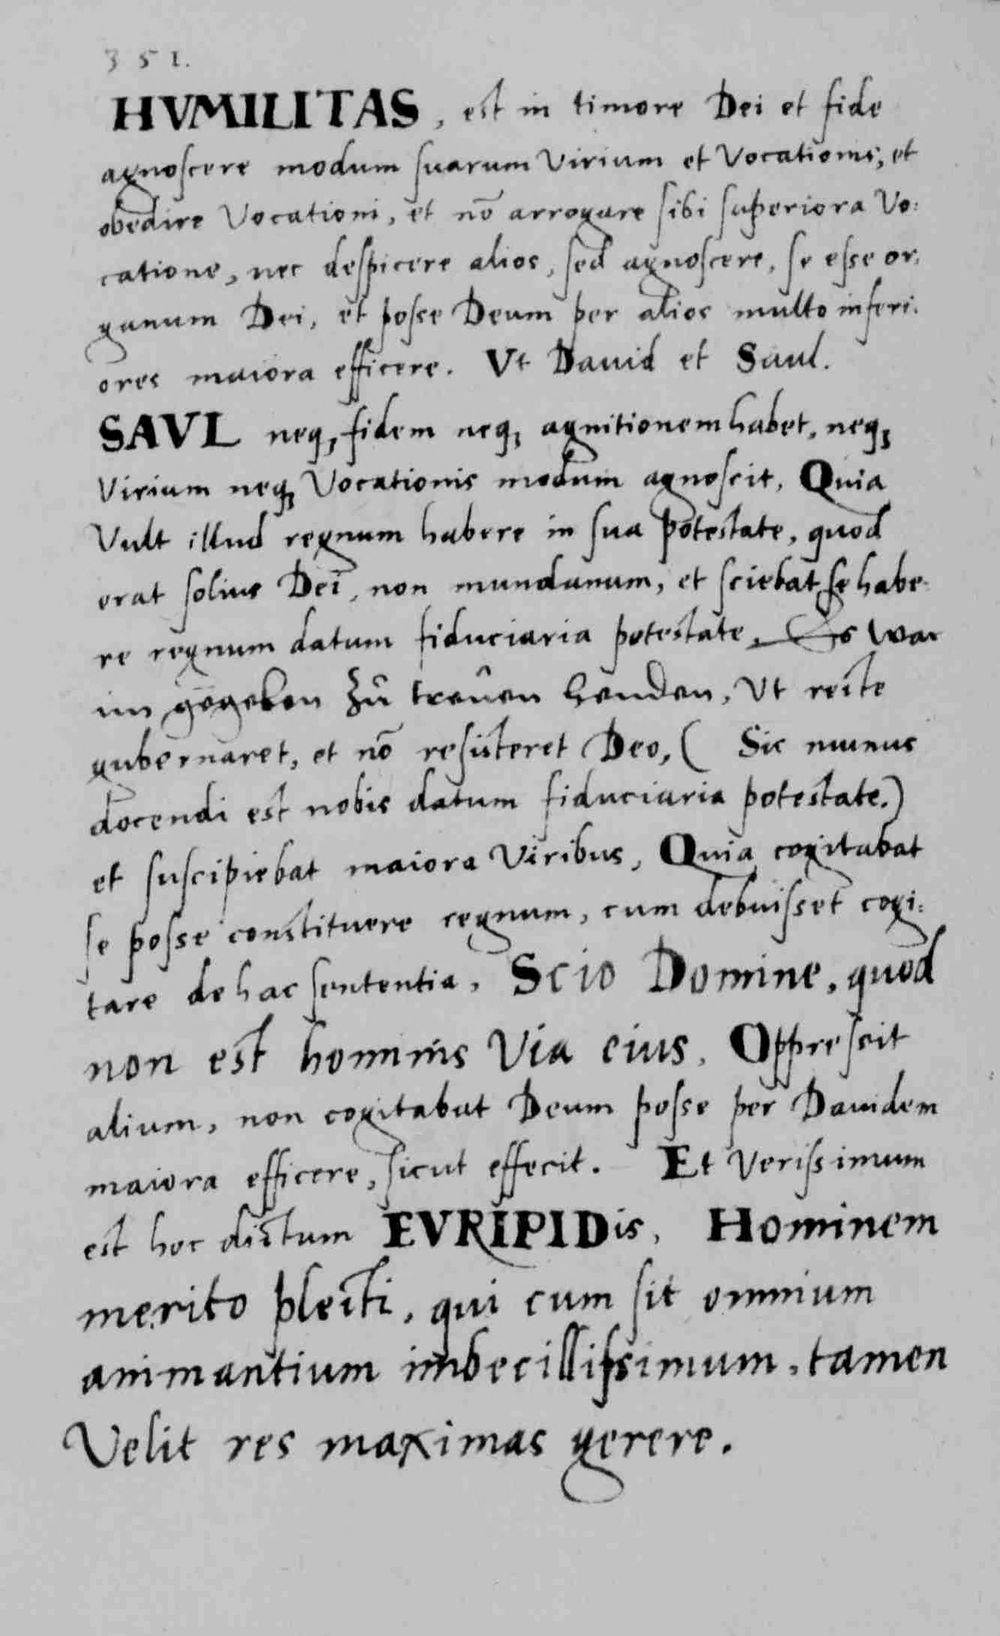 351.
HVMILITAS, est in timore Dei et fide
agnoscere modum suarum Virium et Vocationis, et
obedire Vocationi, et nō arrogare sibi superiora Vo:
catione, nec despicere alios, sed agnoscere, se esse or,
ganum Dei, et posse Deum per alios multo inferi,
ores maiora efficere. Vt Dauid et Saul.
SAVL neq, fidem neq, agnitionem habet, neq,
Virium neq, Vocationis modum agnoscit, Quia
Vult illud regnum habere in sua potestate, quod
erat solius Dei, non mundanum, et sciebat se habe,
re regnum datum fiduciaria potestate, Es war
im gegeben zů treuen henden, Vt recte
gubernaret, et nō resisteret Deo, ( Sic munus
docendi est nobis datum fiduciaria potestate.)
et suscipiebat maiora Viribus, Quia cogitabat
se posse constituere regnum, cum debuisset cogi:
tare de hac sententia, Scio Domine, quod
non est hominis Via eius, Oppressit
alium, non cogitabat Deum posse per Dauidem
maiora efficere, sicut effecit. Et Verissimum
est hoc dictum EVRIPIDis, Hominem
merito plecti, qui cum sit omnium
animantium imbecillissimum, tamen
Velit res maximas gerere.